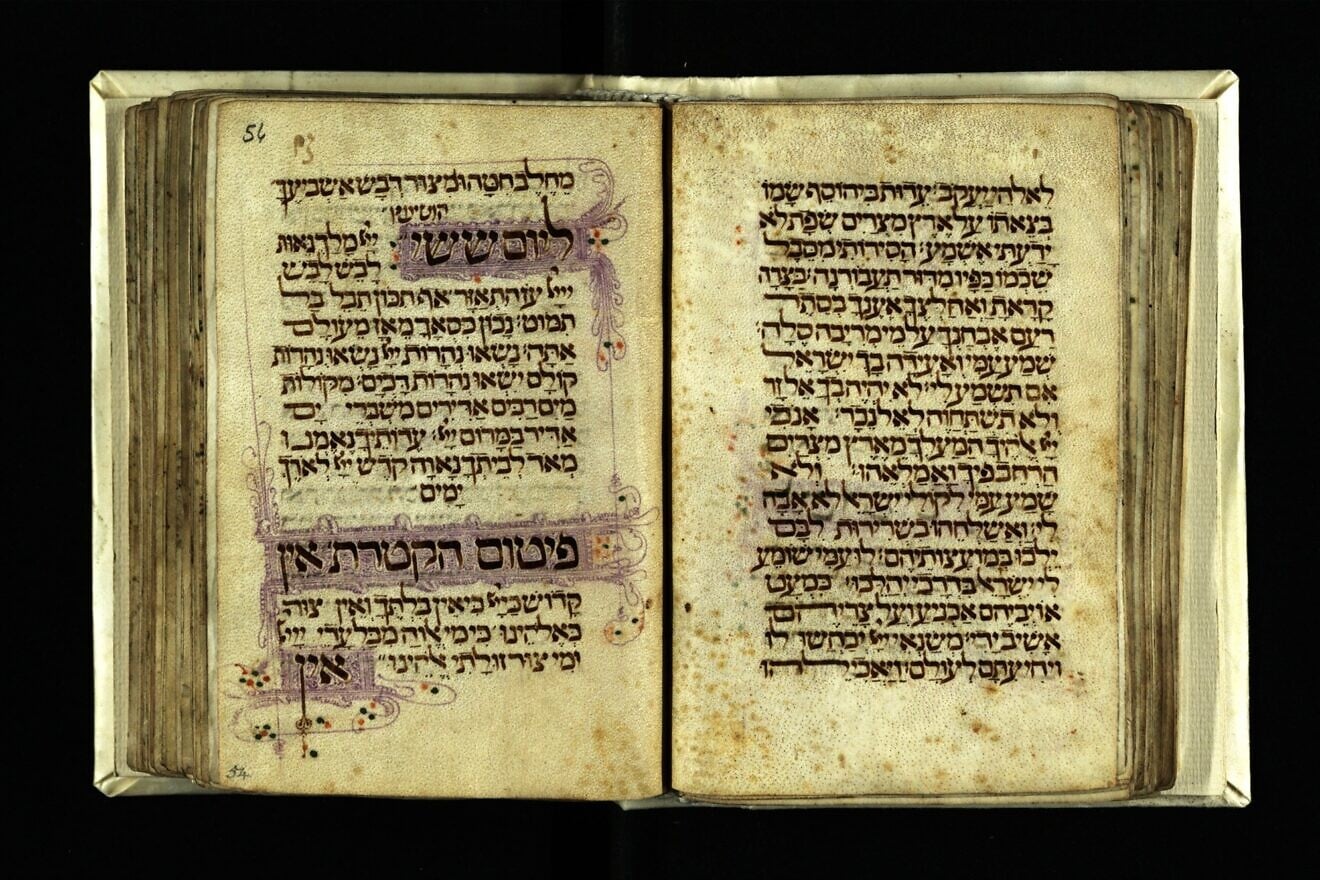 לאלהי יעקב׃ עדות ביהוסף שמו
בצאתו על ארץ מצרים שפת לא
ידעתי אשמע׃ הסירותי מסבל
שכמו כפיו מדוד תעבורנה׃ בצרה
קראת ואחלצך אענך בסתר
רעם אבחנך על מי מריבה סלה׃
שמע עמי ואעידה בך ישראל
אם תשמע לי׃ לא יהיה בך אל זר
ולא תשתחוה לאל נכר׃ אנכי
ייי אלהיך המעלך מארץ מצרים
הרחב פיך ואמלאהו׃ ולא
שמע עמי לקולי וישראל לא אבה
לי׃ ואשלחהו בשרירות לבם
ילכו במועצותיהם׃ לו עמי שומע
לי ישראל בדרכי יהלכו׃ כמעט
אויביהם אכניע ועל צריהם
אשיב ידי׃ משנאי ייי יכחשו לו
ויהי עתם לעולם׃ ויאכילהו
54
מחלב חטה ומצור דבש אשביעך
הושיענו
ליום ששי ייי מלך גאות
לבש לבש
ייי עוז התאזר אף תכון תבל בל
תמוט׃ נכון כסאך מאז מעולם
אתה׃ נשאו נהרות ייי נשאו נהרות
קולם ישאו נהרות דכים׃ מקולות
מים רבים אדירים משברי ים
אדיר במרום ייי׃ עדותיך נאמנו
מאד לביתך נאוה קדש ייי לאורך
ימים
פיטום הקטרת אין
קדוש כייי כי אין בלתך ואין צור
כאלהינו׃ כי מי אלוה מבלעדי ייי
ומי צור זולתי אלהינו׃
אין
54